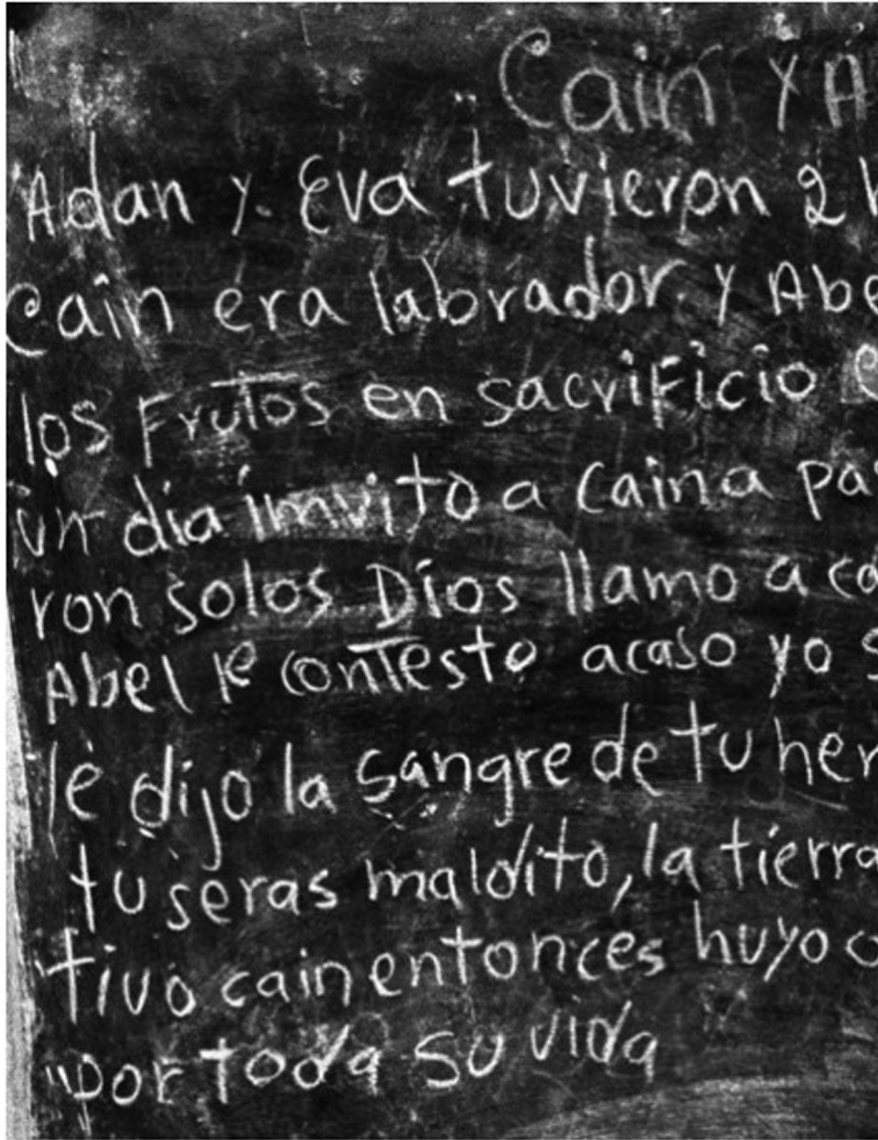 Cain Y A
Adan y. Eva tuvieron 2 h
Cain era labrador. y Abe
los Frutos en sacrificio
un dia imvito a Cain a pa
ron solos Dios llamo a ca
Abel le contesto acaso yo s
le dijo la sangre de tu her
tu seras maldito, la tierra
tivo cain entonces huyo
por toda su vida